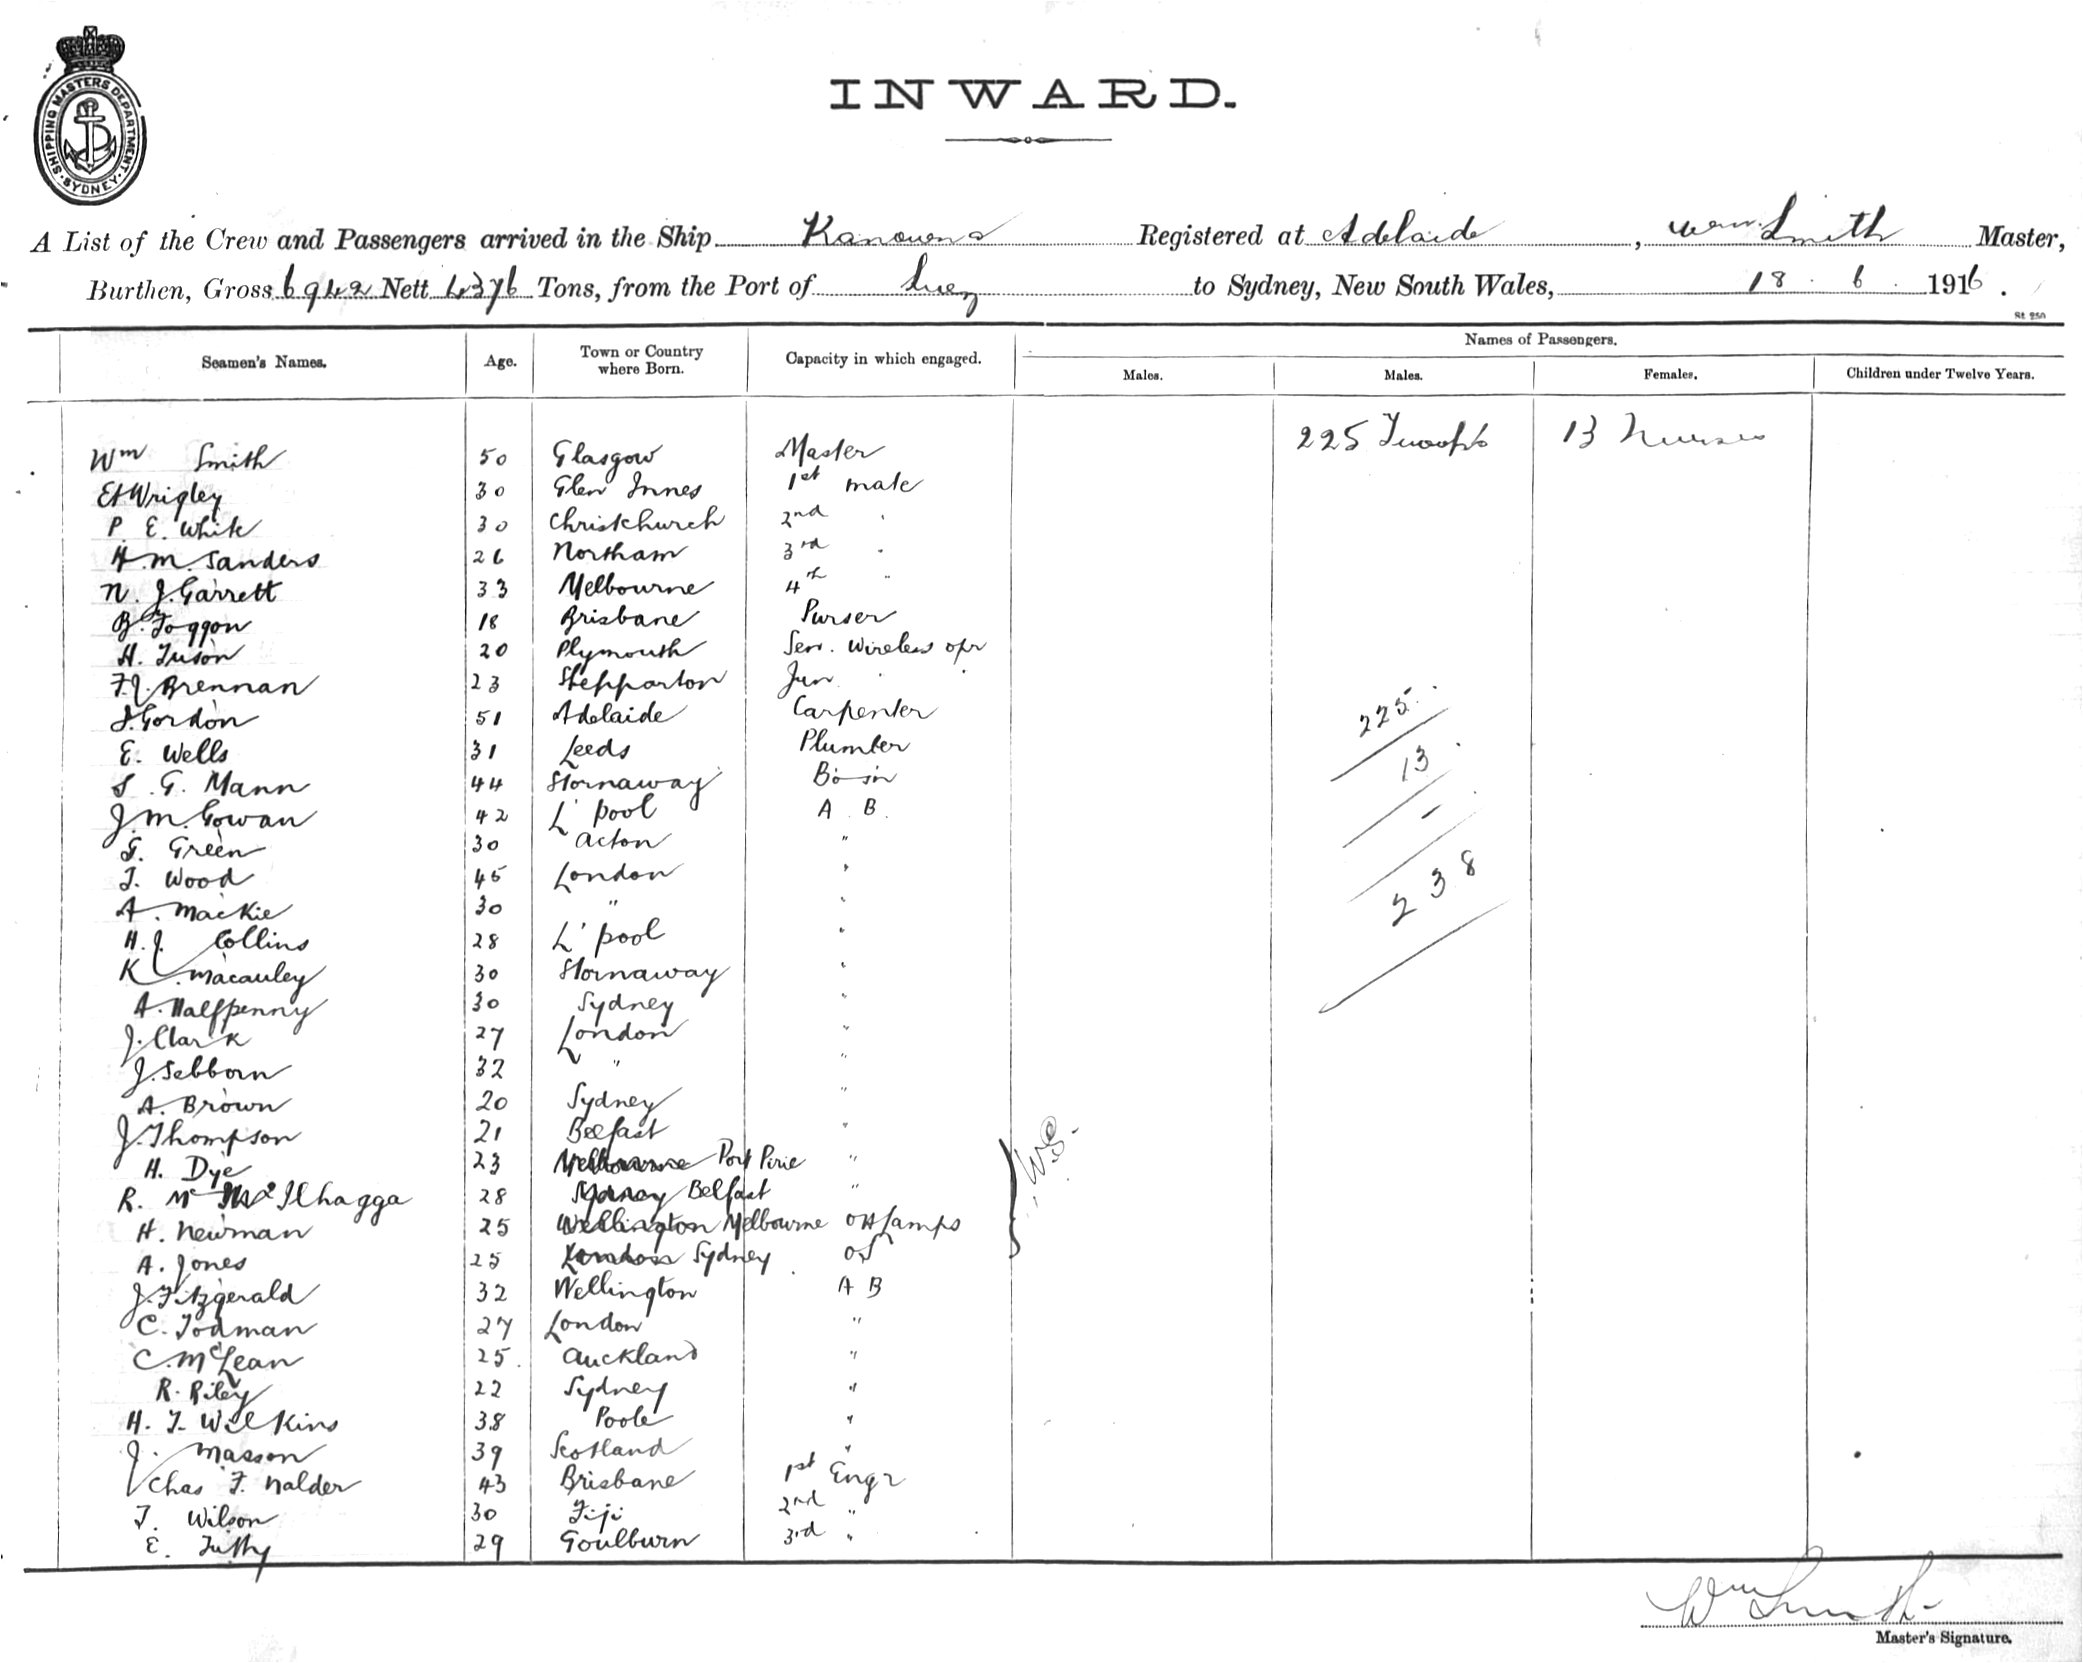 SHIPPING MASTERS DEPARTMENT · SYDNEY ·
INWARD.
A List of the Crew and Passengers arrived in the Ship Kanowna Registered at Adelaide, Wm Smith Master,
Burthen, Gross 6942 Nett 4376 Tons, from the Port of Suez to Sydney, New South Wales, 18 . 6 . 1916.
St 250
Seamen's Names. Age. Town or Country where Born. Capacity in which engaged. Names of Passengers.
Males. Males. Females. Children under Twelve Years.
225 Troops 13 Nurses
Wm Smith 50 Glasgow Master
Wrigley 30 Glen Innes 1st mate
P. E. White 30 Christchurch 2nd "
H. M. Sanders 26 Northam 3rd "
N. J. Garrett 33 Melbourne 4th "
B. Foggon 18 Brisbane Purser
H. Tuson 20 Plymouth Sen. Wireless opr
F. J. Brennan 23 Shepparton Jun " "
J. Gordon 51 Adelaide Carpenter
E. Wells 31 Leeds Plumber
S. G. Mann 44 Stornaway Bo'sn
J. M. Gowan 42 L'pool A B
G. Green 30 Acton "
T. Wood 45 London "
A. Mackie 30 " "
H. J. Collins 28 L'pool "
K. Macauley 30 Stornaway "
A. Halfpenny 30 Sydney "
J. Clark 27 London "
J. Sebborn 32 " "
A. Brown 20 Sydney "
J. Thompson 21 Belfast "
H. Dye 23 Melbourne Port Pirie "
R. Mc Ilhagga 28 Sydney Belfast "
H. Newman 25 Wellington Melbourne OS Lamps
A. Jones 25 London Sydney OS
J. Fitzgerald 32 Wellington A B
C. Todman 27 London "
C. McLean 25 Auckland "
R. Riley 22 Sydney "
H. T. Wilkins 38 Poole "
J. Masson 39 Scotland "
Chas F. Nalder 43 Brisbane 1st Engr
T. Wilson 30 Fiji 2nd "
E. Tutty 29 Goulburn 3rd "
225
13
-
238
WS
Wm Smith
Master's Signature.